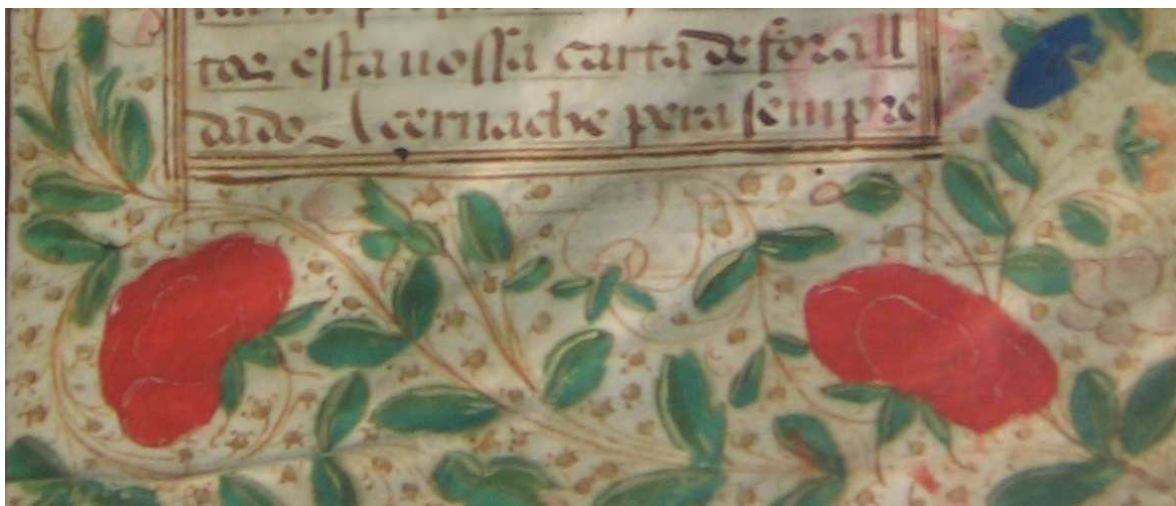 tar esta nossa carta de forall
dado A cernache pera sempre